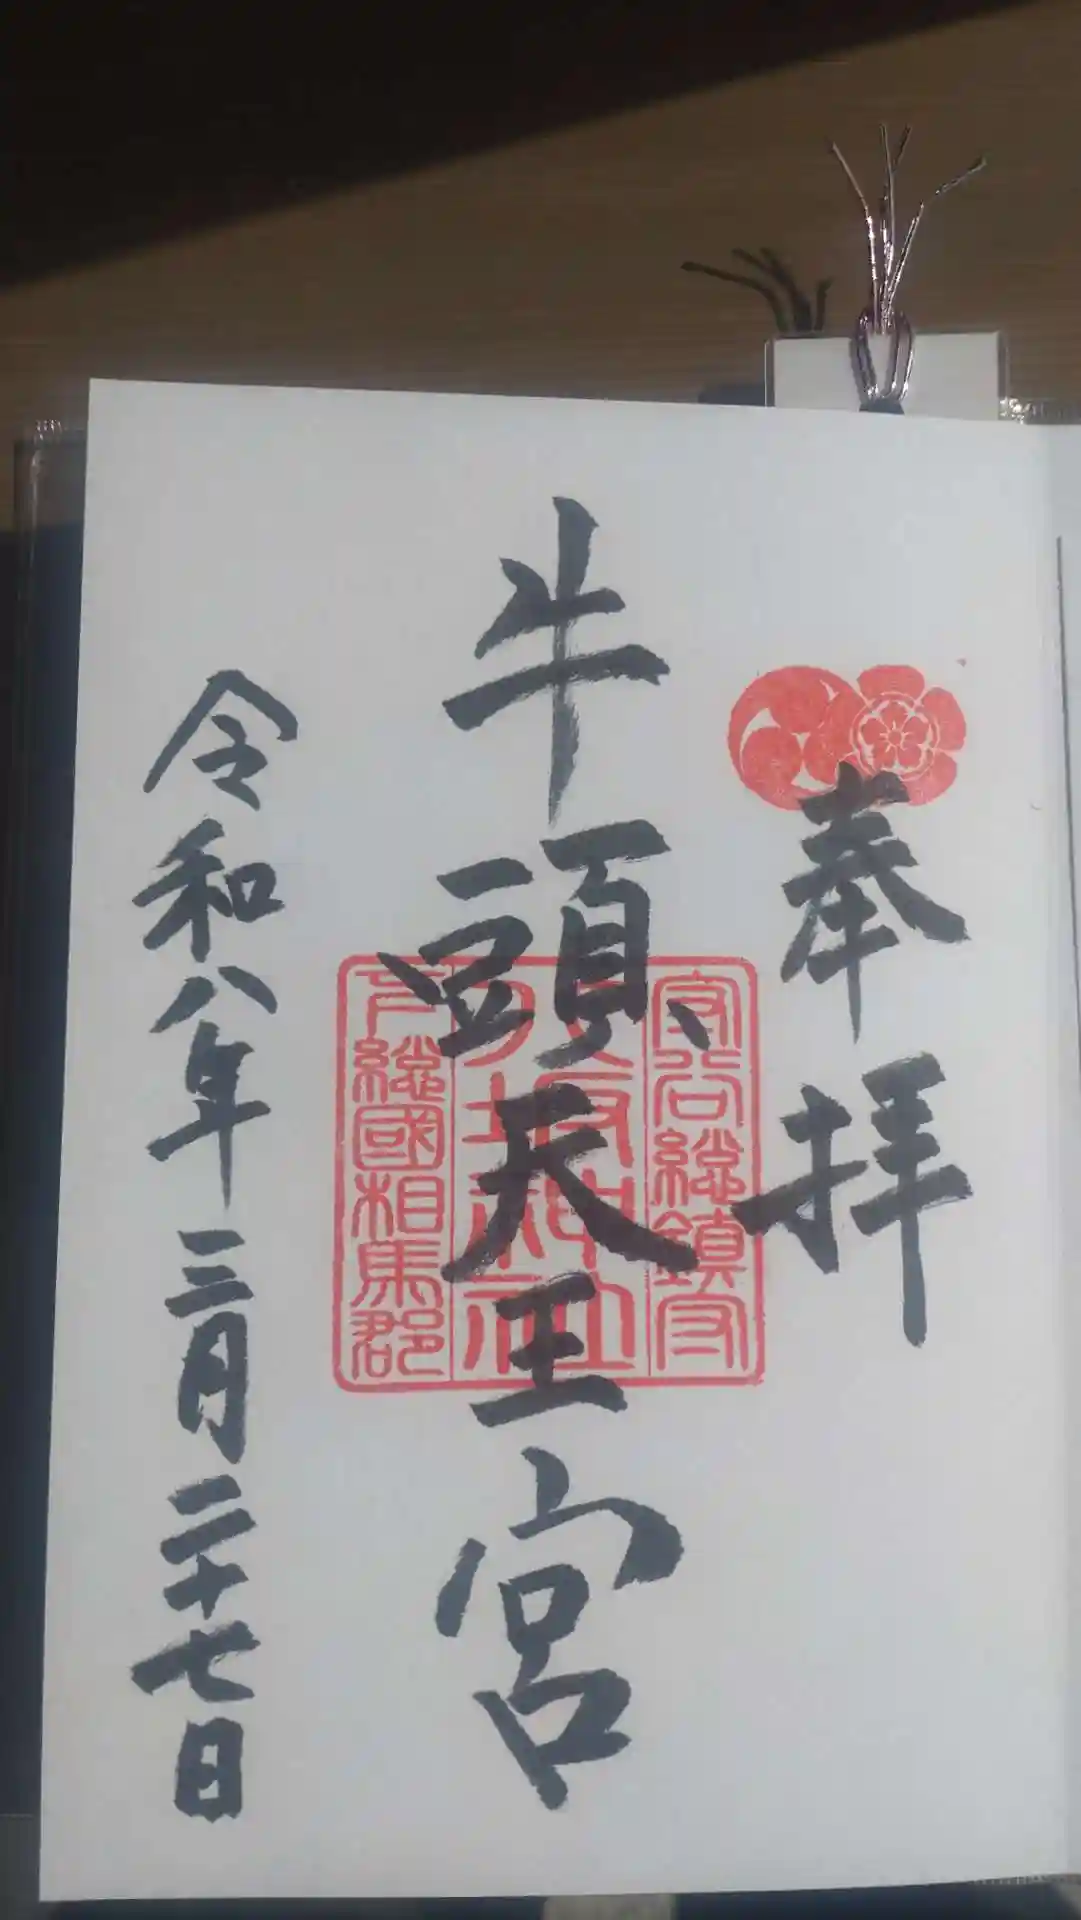 奉拝
牛頭天王宮
守谷総鎮守
八坂神社
下総國相馬郡
令和八年三月二十七日